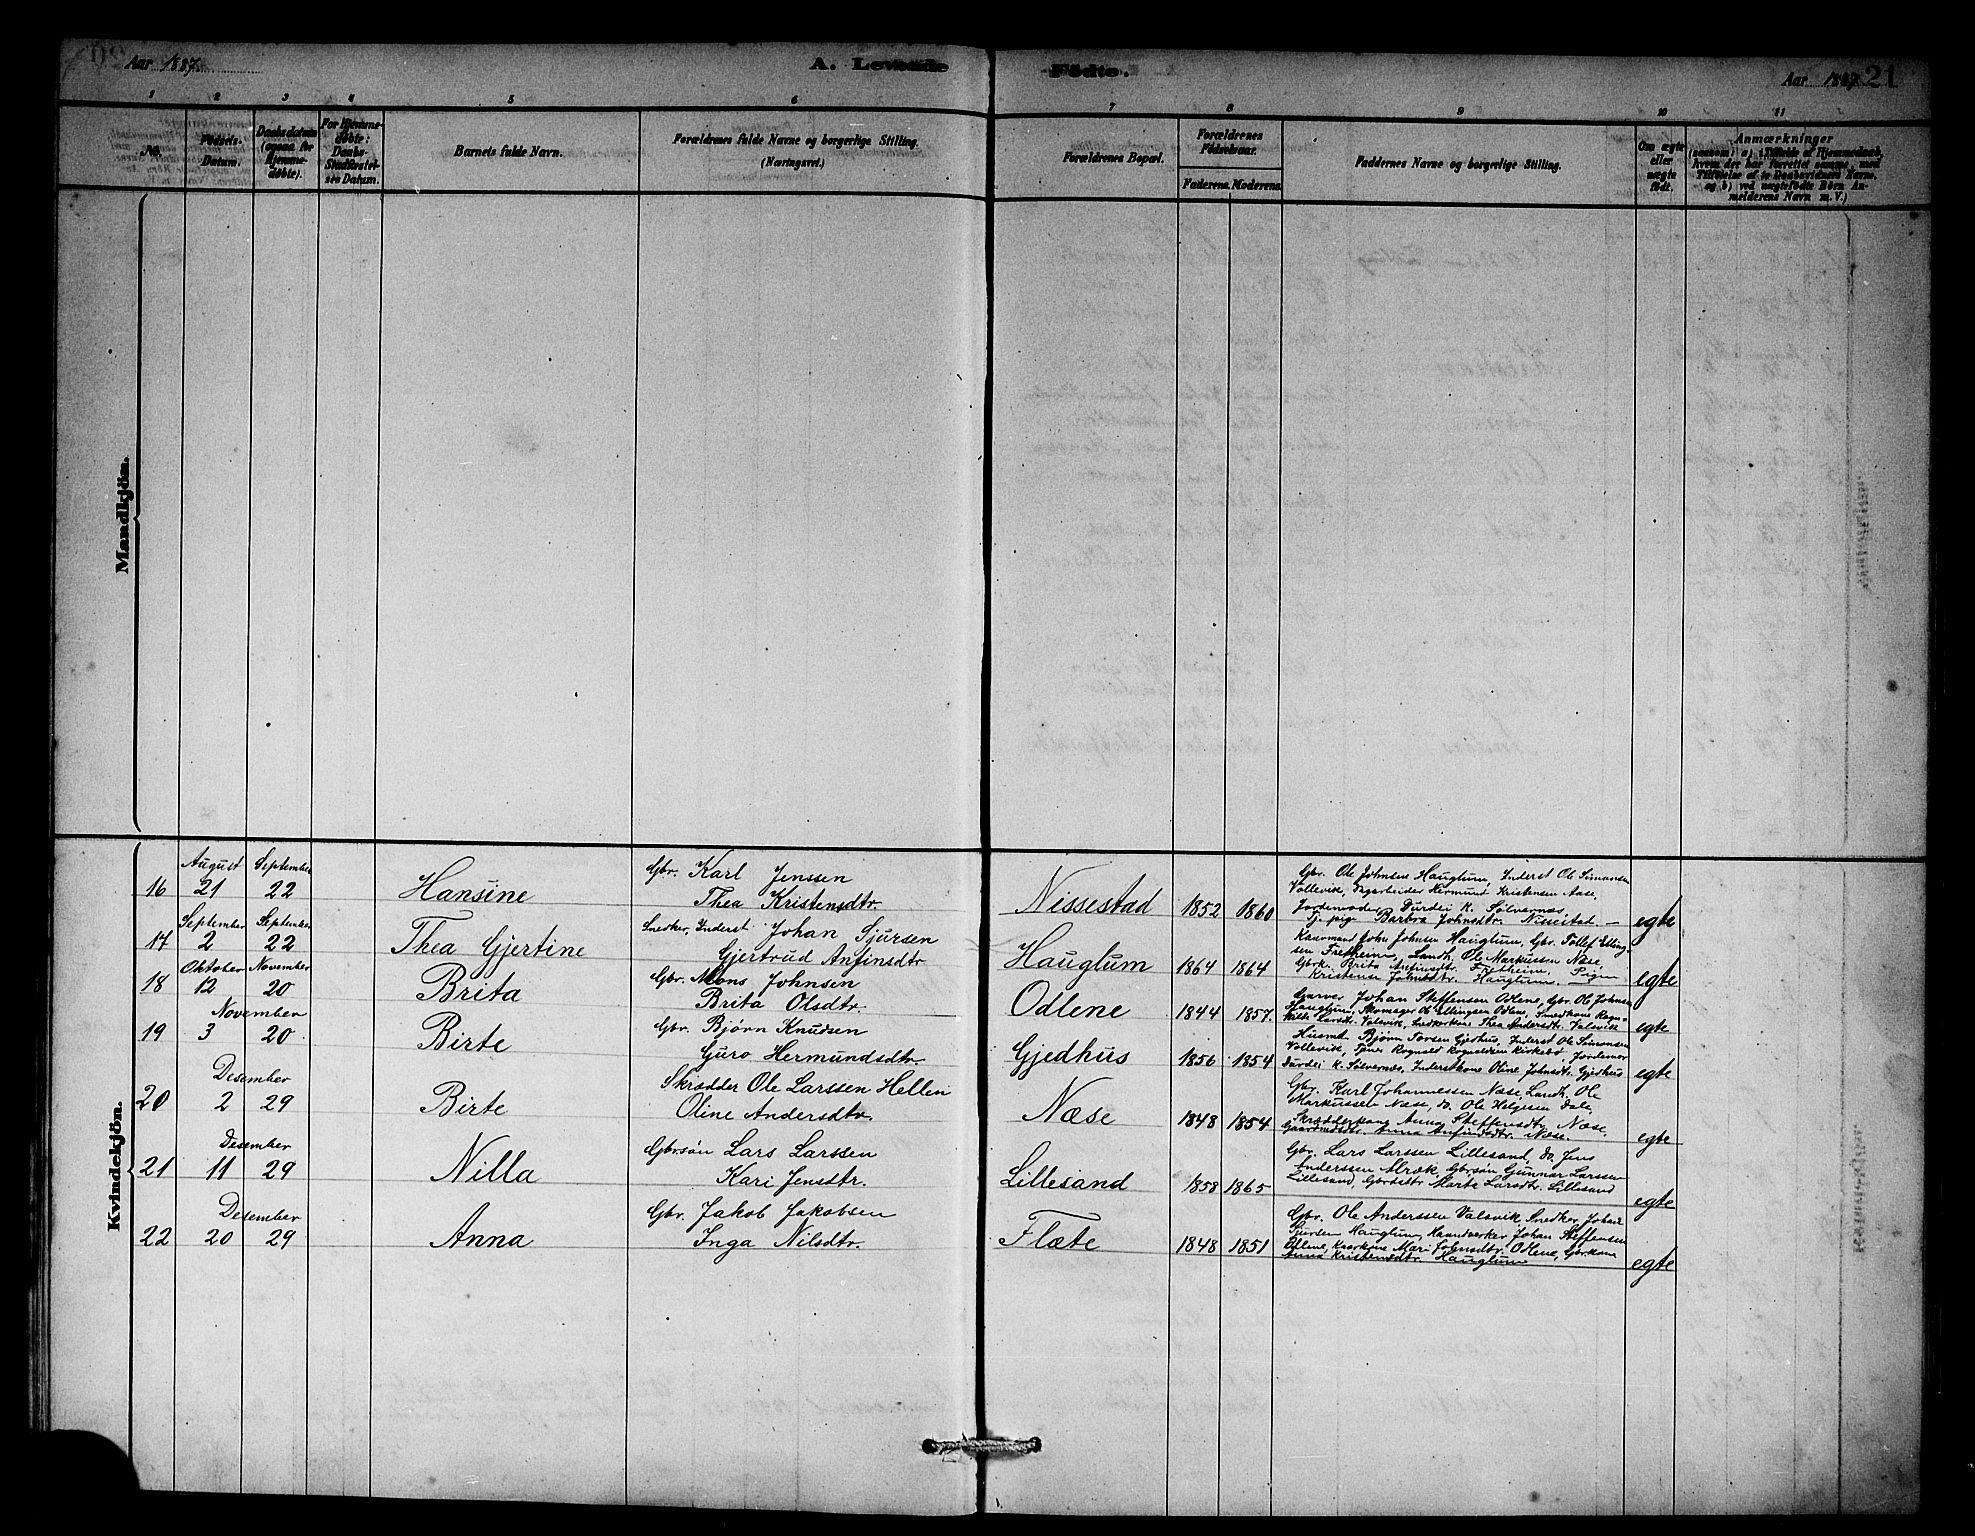 Aar 1887. A. Levende Fødte. Aar 1887. 21
1 2 3 4 5 6 7 8 9 10 11
No. Fødsels-Datum. Daabsdatum (ogsaa for Hjemmedøbte). For Hjemmedøbte: Daabs-Stadfæstelses Datum. Barnets fulde Navn. Forældrenes fulde Navne og borgerlige Stilling. (Næringsvei.) Forældrenes Bopæl. Forældrenes Fødselsaar. Faderens. Moderens. Faddernes Navne og borgerlige Stilling. Om ægte eller uægte født. Anmærkninger
(saasom: a) i Tilfælde af Hjemmedaab,
hvem der har forrettet samme, med
Tilføielse af to Daabsvidners Navne,
og b) ved uægtefødte Børn An-
melderens Navn m. V.)
Mandkjön.
Kvindekjön.
16 August 21 September 22 Hansine Gbr. Karl Jenssen
Thea Kristensdtr. Nissestad 1852 1860 egte
Gbr. Ole Johnsen Hauglum, Inderst Ole Simonsen
Vollevik, Dagarbeider Hermund Kristensen Aase,
Jordemoder Durdei K. Sølvernæs,
Tj. pige Barbra Johnsdtr. Nissestad.
17 September 2 September 22 Thea Gjertine Snedker, Inderst Johan Sjursen
Gjertrud Anfinsdtr. Hauglum 1864 1864 egte
Kaarmand John Johnsen Hauglum, Gbr. Tollef Elling-
sen Fretheim, Landh. Ole Markussen Næse,
Gbrk. Brita Anfinsdtr. Fretheim, Pige
Kristense Johnsdtr. Hauglum.
18 Oktober 12 November 20 Brita Gbr. Mons Johnsen
Brita Olsdtr. Odlene 1844 1857. egte
Garver Johan Steffensen Odlene, Gbr. Ole Johnsen
Hauglum, Skomager Ole Ellingsen Odlene, Smedkone Ragn-
hilde Larsdtr. Valsvik, Snedkerkone Thea Andersdtr. Valsvik
19 November 3 20 Birte Gbr. Bjørn Knudsen
Guro Hermundsdtr. Gjedhus 1856 1854 egte
Husmd. Bjørn Torsen Gjedhus, Inderst Ole Simonsen
Vollevik, Tjener Rognald Rognaldsen Kirkebø, Jordemor
Durdei K. Sølvernæs, Inderstkone Oline Johnsdtr. Gjedhus
20 Desember 2 29 Birte Skrædder Ole Larssen Hellen
Oline Andersdtr. Næse 1848 1854 egte
Gbr. Karl Johannessen Næse, Landh. Ole
Markussen Næse, do. Ole Helgesen Dale,
Skrædderkone Anna Steffensdtr. Næse,
Gaardmdtr. Anna Anfindsdtr. Næse.
21 Desember 11 29 Nilla Gbrsøn Lars Larssen
Kari Jensdtr. Lillesand 1858 1865 egte
Gbr. Lars Larssen Lillesand, do. Jens
Anderssen Alræk, Gbrsøn Gunnar Larssen
Lillesand, Gbrdatter Marta Larsdtr. Lillesand
22 Desember 20 29 Anna Gbr. Jakob Jakobsen
Inga Nilsdtr. Flæte 1848 1851 egte
Gbr. Ole Anderssen Valsvik, Snedker Johan
Sjursen Hauglum, Haandverker Johan Steffensen
Odlene, Kaarkone Mari Johnsdtr. Odlene, Gbrkone
Anna Kristensdtr. Hauglum